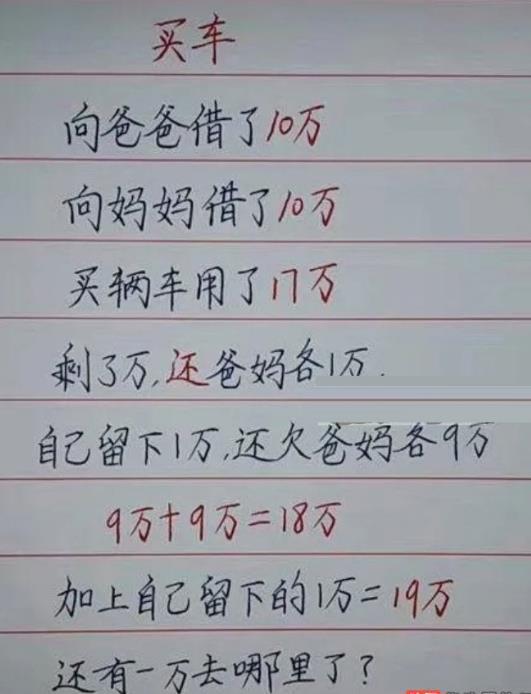 买车
向爸爸借了10万
向妈妈借了10万
买辆车用了17万
剩了3万,还爸妈各1万.
自己留下1万,还欠爸妈各9万
9万+9万=18万
加上自己留下的1万=19万
还有一万去哪里了?